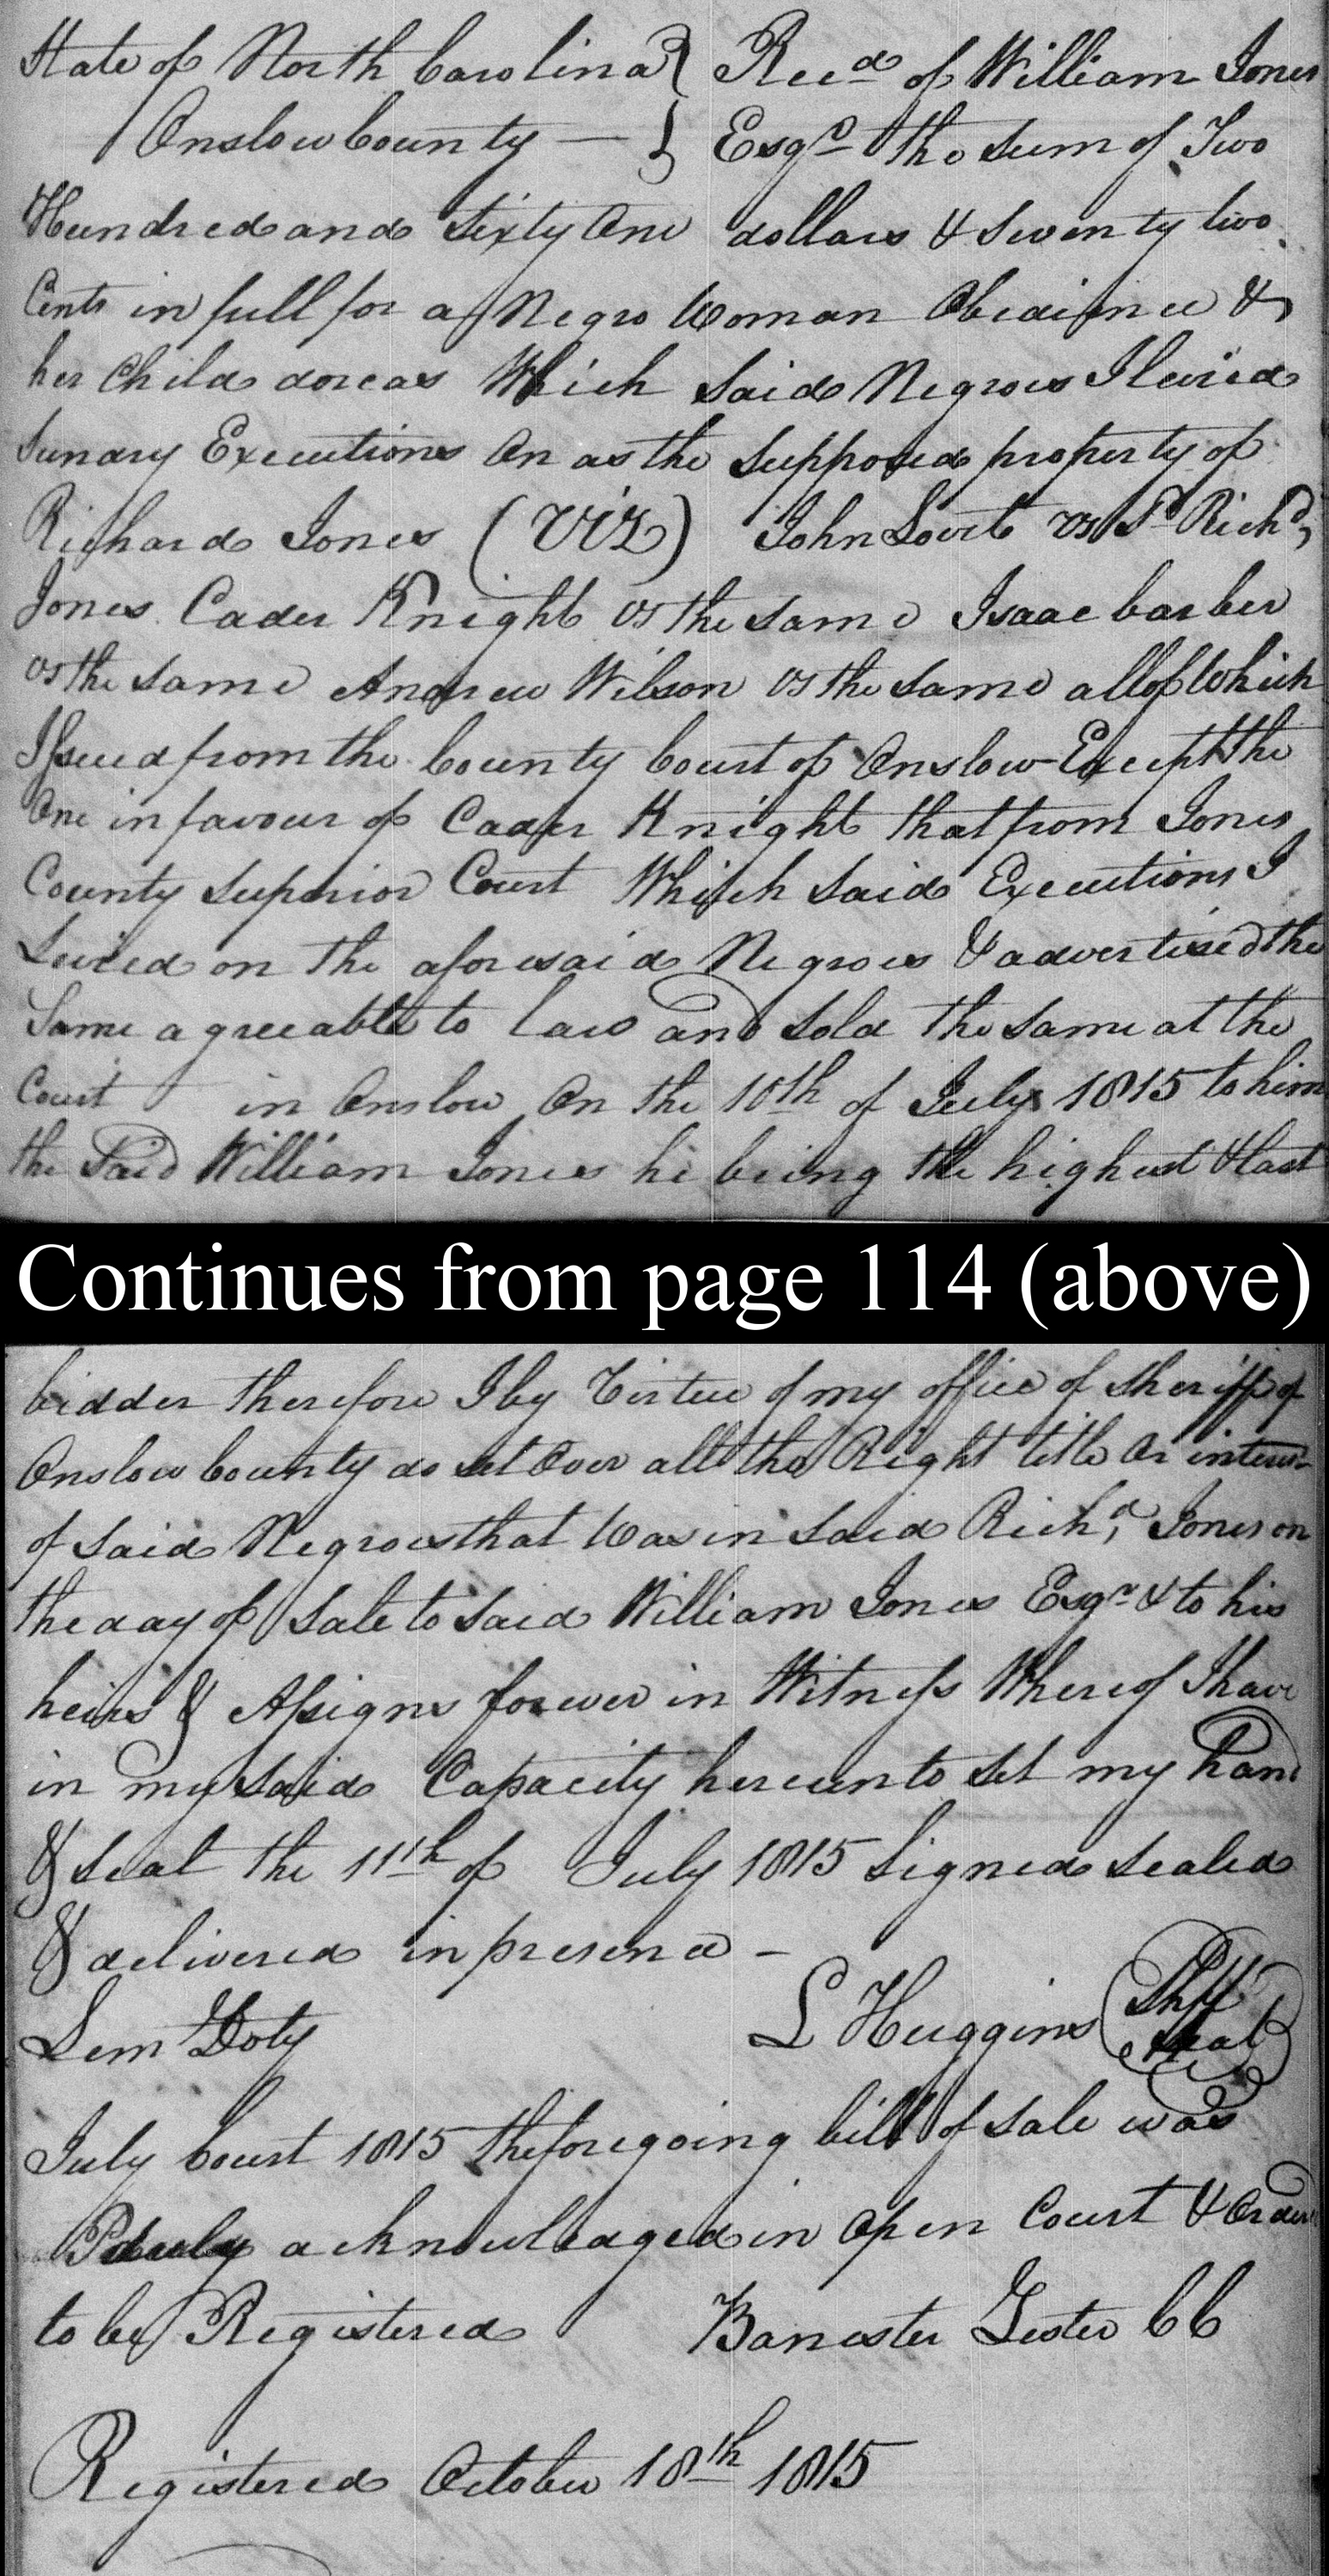 State of North Carolina } Recd of William Jones
Onslow County — } Esqr the sum of Two
Hundred and Sixty One dollars & Seventy two
Cents in full for a Negro Woman Obedience &
her Child dorcas Which Said Negroes I levied
Sundry Executions On as the Supposed property of
Richard Jones (Viz) John Lovit vs Sd Richd,
Jones Cader Knight vs the Same Isaac barber
vs the Same Andrew Wilson vs the Same all of Which
Issued from the County Court of Onslow Except the
One in favour of Cader Knight that from Jones
County Superior Court Which Said Executions I
Levied on the aforesaid Negroes & advertised the
Same agreeable to law and Sold the Same at the
Court in Onslow On the 10th of July 1815 to him
the Said William Jones he being the highest & last
Continues from page 114 (above)
bidder therefore I by Virtue of my office of Sheriff of
Onslow County do set Over all the Right title Or interest
of Said Negroes that Was in Said Richd, Jones on
the day of Sale to Said William Jones Esqr & to his
heirs & Assigns forever in Witness Whereof I have
in my Said Capacity hereunto Set my hand
& Seal the 11th of July 1815 Signed Sealed
& delivered in presence –
Lem Doty L Huggins Shff Seal
July Court 1815 the foregoing bill of Sale was
duly acknowledged in Open Court & Order
to be Registered Banester Lester CC
Registered October 18th 1815